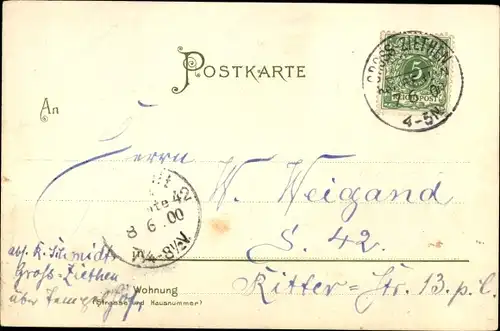 POSTKARTE
GROSS-ZIETHEN
5
REICHSPOST
6
4-5N.
An
Herrn
W. Weigand
42
8 6.00
8½N.
S. 42.
abs. R. Schmidt
Gross=Ziethen
über Tempelhof.
Wohnung
(Strasse und Hausnummer)
Ritter=Str. 13. p. l.